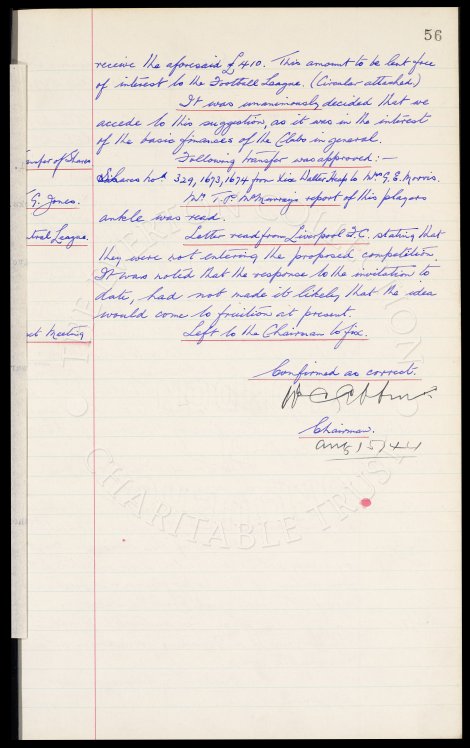 56
receive the aforesaid £410. This amount to be lent free
of interest to the Football League. (Circular attached)
It was unanimously decided that we
accede to this suggestion, as it was in the interest
of the basic finances of the Clubs in general.
nsfer of Shares
Following transfer was approved:-
Shares Nos 329, 1673, 1674 from Walter Heap to Mr. G. E. Morris.
T. G. Jones.
Mr. McMurrays report of this players
ankle was read.
ntral League.
Letter read from Liverpool F.C. stating that
they were not entering the proposed competition.
It was noted that the response to the invitation to
date, had not made it likely that the idea
would come to fruition at present.
Meeting
Left to the Chairman to fix.
Confirmed as correct.
Chairman.
Aug 15/44
CHARITABLE TRUST